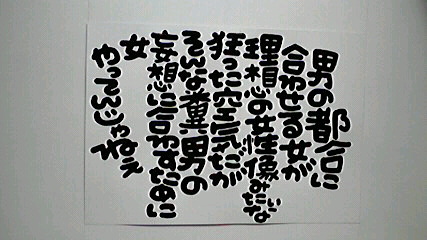 男の都合に
合わせる女が
理想の女性像みたいな
狂った空気だが
そんな糞男の
妄想に合わすために
女
やってんじゃねぇ